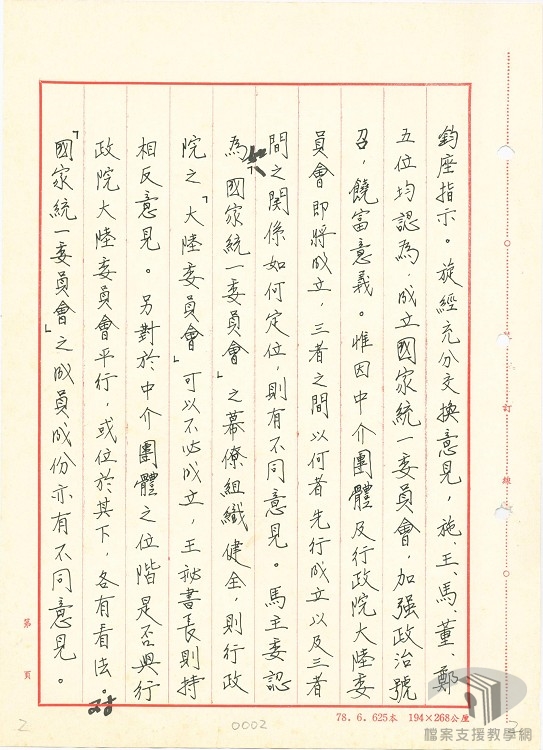 鈞座指示。旋經充分交換意見，施、王、馬、董、鄭
五位均認為，成立國家統一委員會，加強政治號
召，饒富意義。惟因中介團體及行政院大陸委
員會即將成立，三者之間以何者先行成立以及三者
間之關係如何定位，則有不同意見。馬主委認
為如「國家統一委員會」之幕僚組織健全，則行政
院之「大陸委員會」可以不必成立，王秘書長則持
相反意見。另對於中介團體之位階是否與行
政院大陸委員會平行，或位於其下，各有看法。對
「國家統一委員會」之成員成份亦有不同意見。
訂
線
第 頁
78. 6. 625本 194×268公厘
2
0002
2
檔案支援教學網